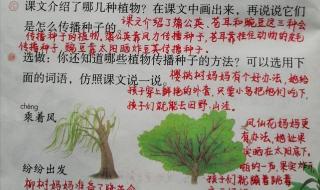 课文介绍了哪几种植物？在课文中画出来，再说说它们是怎么传播种子的
课文介绍了蒲公英、苍耳和豌豆这三种会
传播种子的植物，蒲公英靠风力传播种子，苍耳靠挂住动物的皮毛
传播种子，豌豆靠太阳晒炸豆荚传播种子。
选做：你还知道哪些植物传播种子的方法？可以选用下
面的词语，仿照课文说一说。
樱桃树妈妈有个好办法，她给
孩子穿上鲜艳的外套，只要小鸟把他们吃下，
孩子们就能去田野、山洼。
chéng
乘着风
凤仙花妈妈更
有办法，她让果
实晒在太阳底下，
啪的一声，果实炸开，
孩子们就蹦着跳着
纷纷出发
柳树妈妈准备了